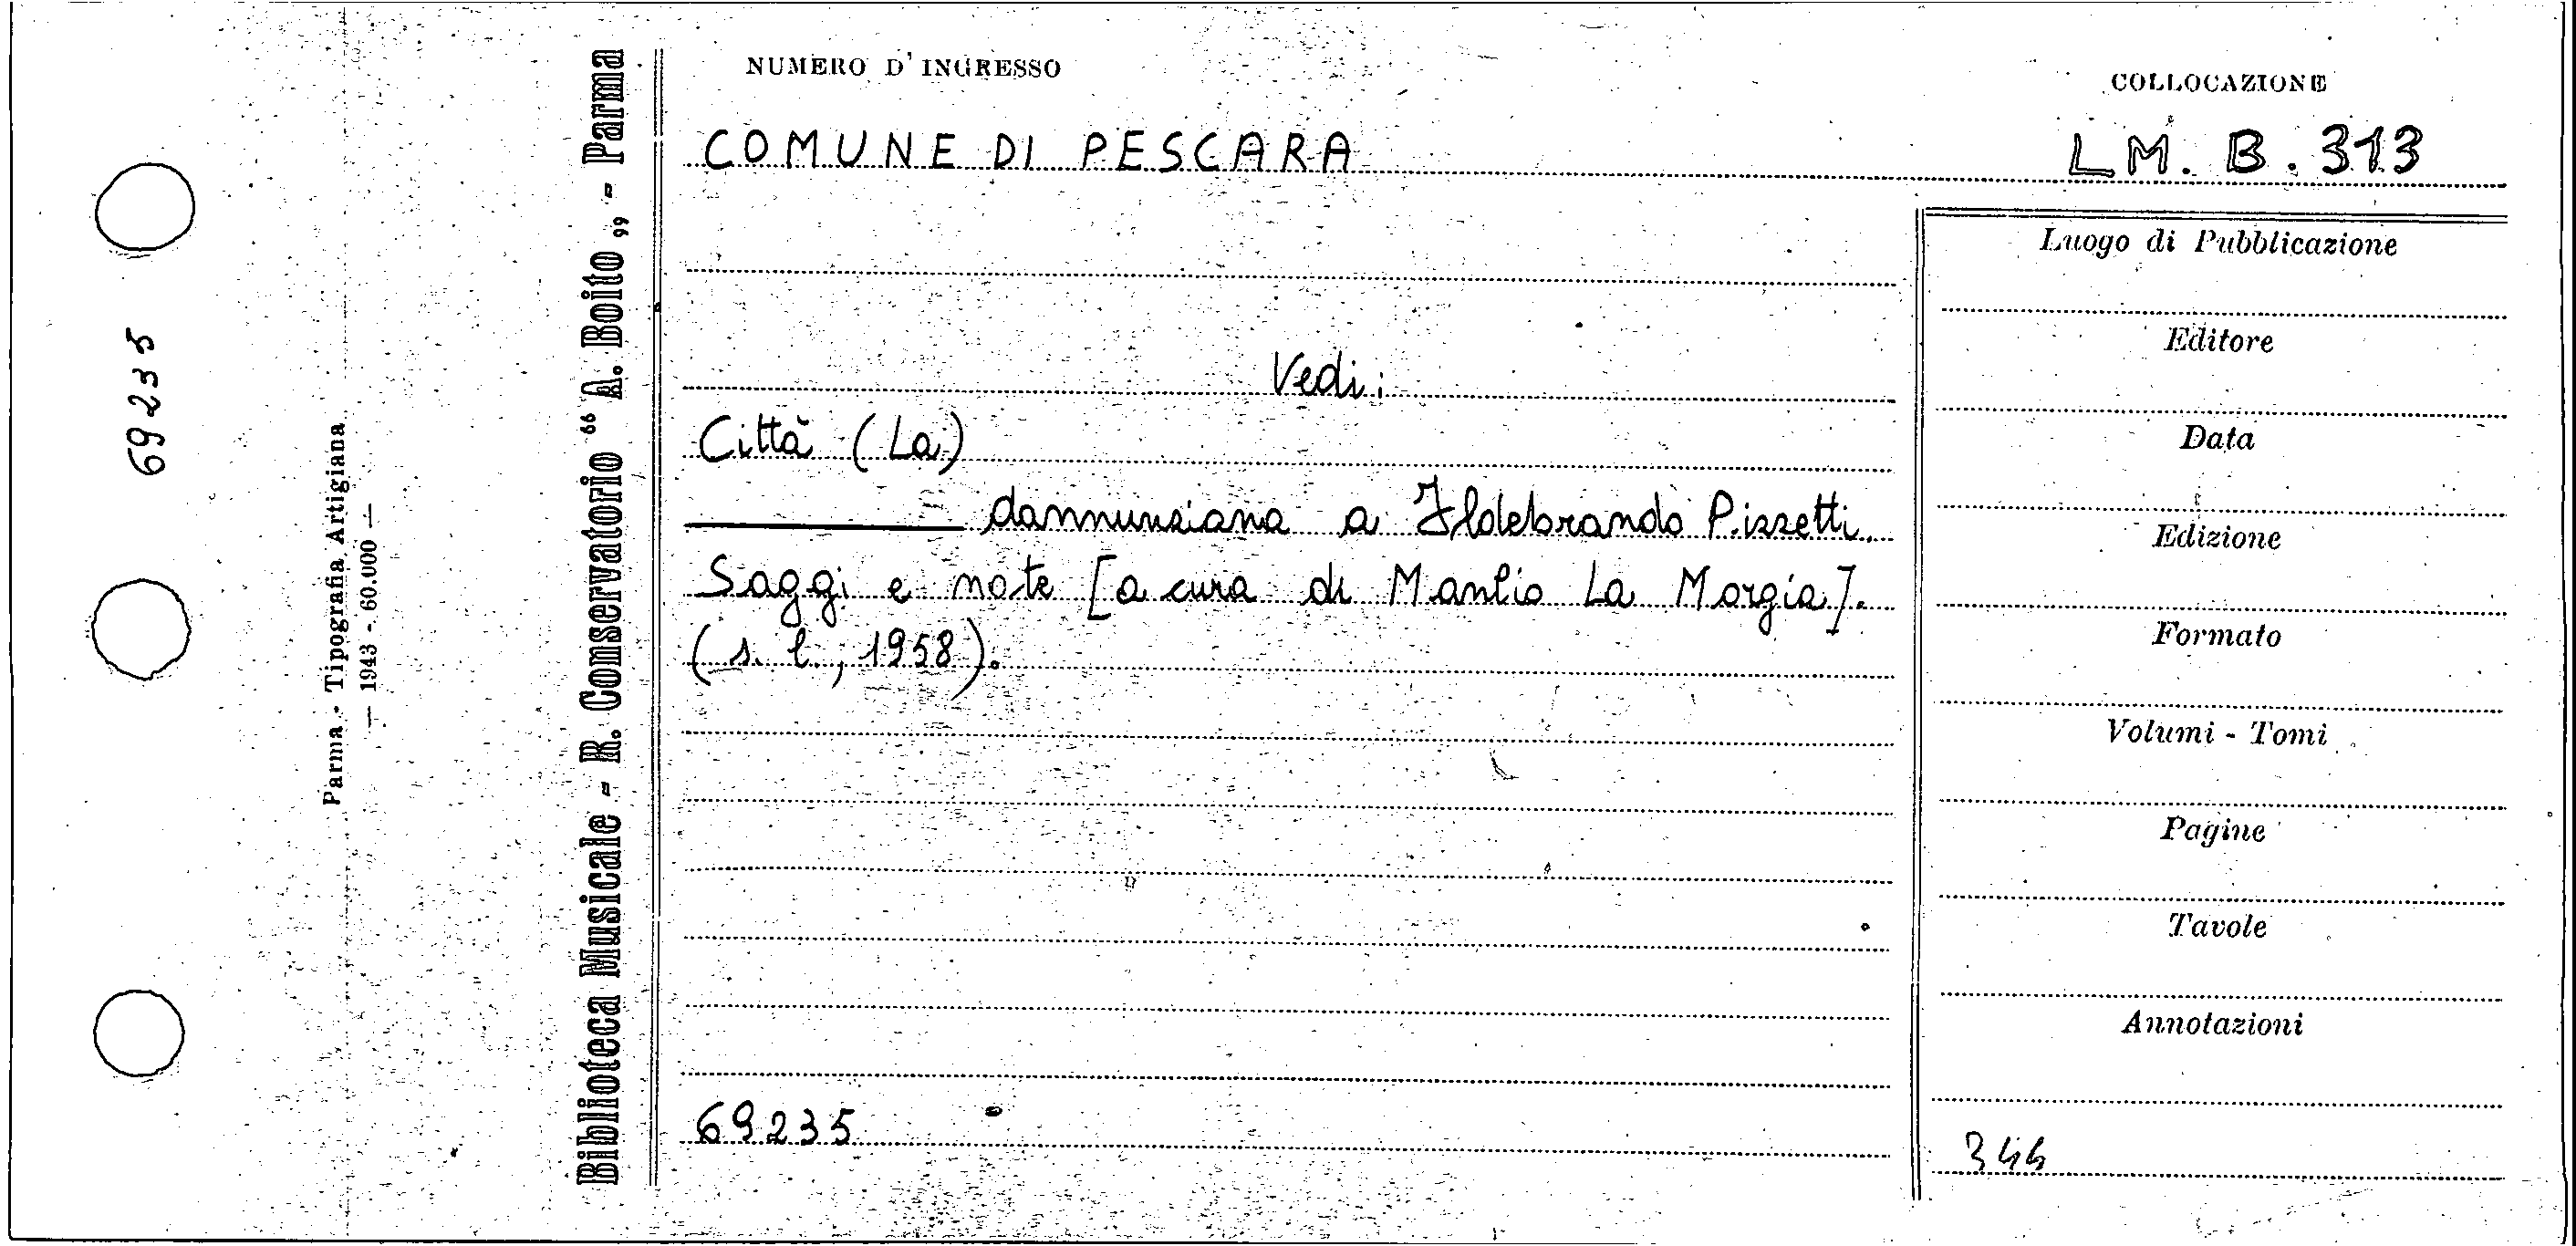 69235
Parma - Tipografia Artigiana
— 1943 - 60.000 —
Biblioteca Musicale - R. Conservatorio “ A. Boito „ - Parma
NUMERO D'INGRESSO
COLLOCAZIONE
COMUNE DI PESCARA
LM. B. 313
Vedi:
Città (La)
dannunziana a Ildebrando Pizzetti.
Saggi e note [a cura di Manlio La Morgia].
(s. l., 1958).
69235
Luogo di Pubblicazione
Editore
Data
Edizione
Formato
Volumi - Tomi
Pagine
Tavole
Annotazioni
344